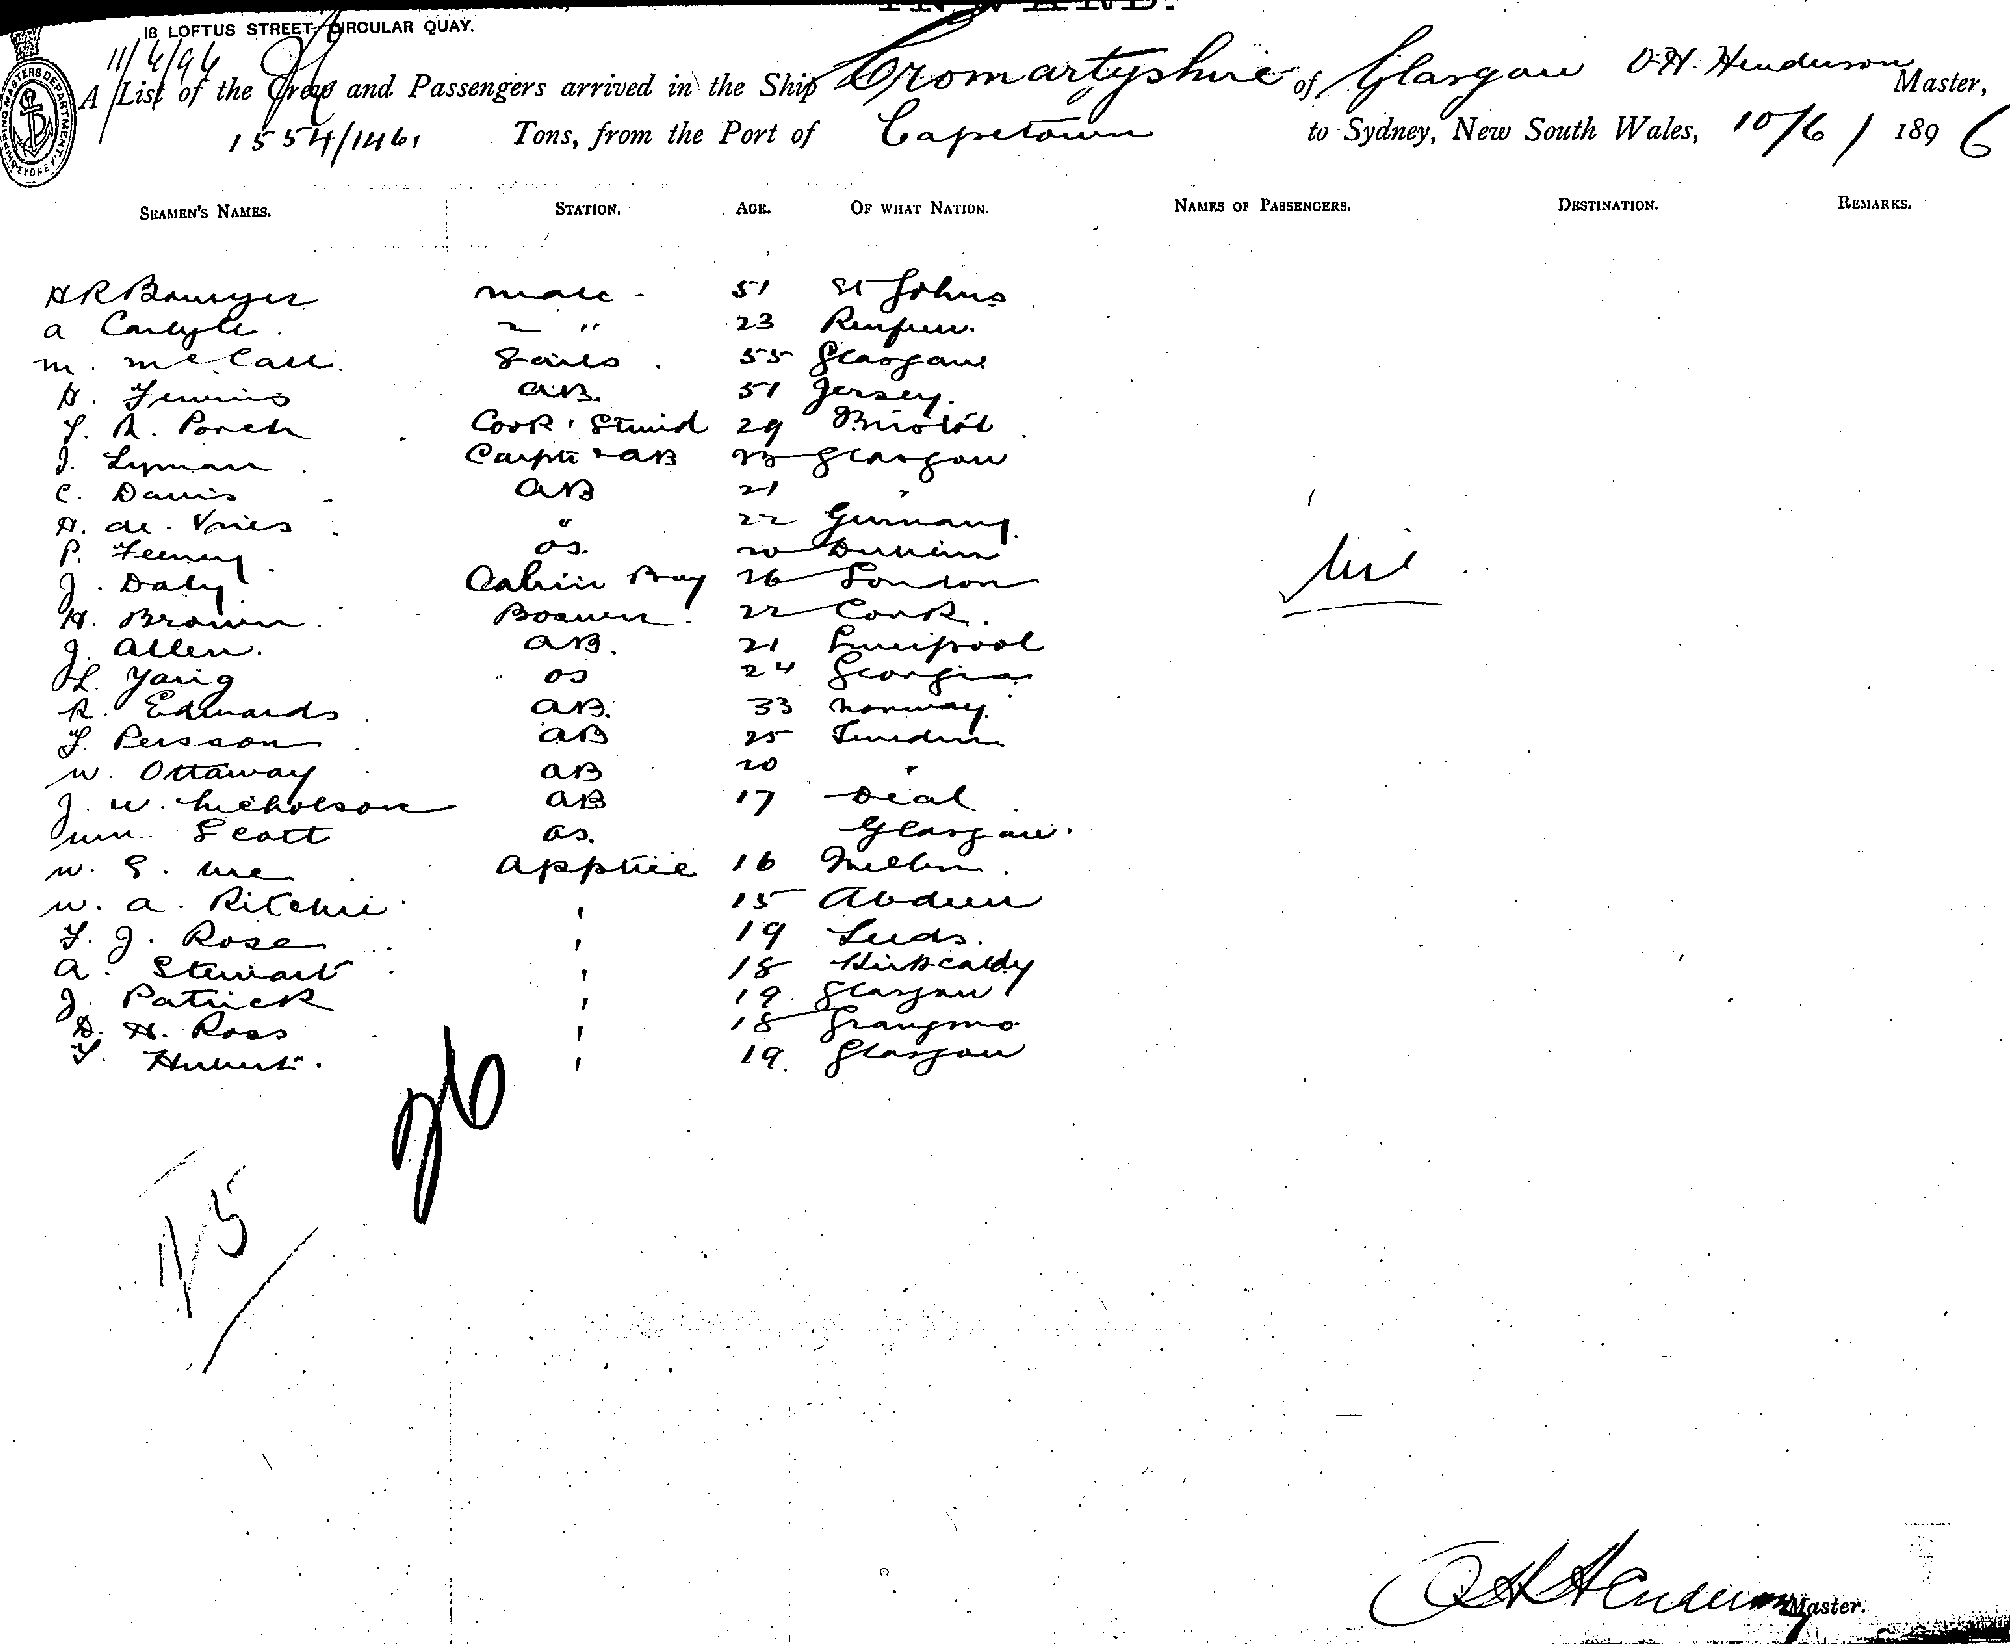 18 LOFTUS STREET, CIRCULAR QUAY.
11/6/96
A List of the Crew and Passengers arrived in the Ship Cromartyshire of Glasgow O.H. Henderson Master,
1554/1461 Tons, from the Port of Capetown to Sydney, New South Wales, 10/6/1896
SEAMEN'S NAMES. STATION. AGE. OF WHAT NATION. NAMES OF PASSENGERS. DESTINATION. REMARKS.
H R Bowyer mate 51 St Johns
A Carlyle 2 " 23 Renfrew.
M. McCall Sails 55 Glasgow
H. AB. 51 Jersey.
F. A. Porch Cook & Steward 29 Bristol
J. Lyman Carptr & AB 23 Glasgow
C. Davis AB 21 "
H. de Vries " 22 Germany.
P. Feeney OS. 20 Dublin
J. Daly Cabin Boy 26 London
H. Brown Boswn. 22 Cork.
J. Allen. AB. 21 Liverpool
L. Yarig OS 24 Georgia
R. Edwards AB. 33 Norway.
F. Persson AB 25 Sweden
W. Ottaway AB 20 "
J. W. Nicholson AB 17 Deal
Wm Scott OS. Glasgow.
W. E. Apptice 16
W. A. Ritchie " 15 Abdeen
F. J. Rose " 19 Leeds.
A. Stewart " 18 Kirkcaldy
J. Patrick " 19. Glasgow
D. H. Ross " 18
F. Hubert. " 19. Glasgow
Nil
26
15
O H Henderson Master.